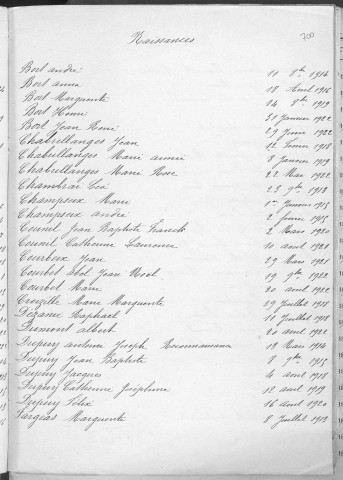 Naissances
700
Bort andré 10 8bre 1914
Bort anna 18 Avril 1916
Bort Marguerite 24 8bre 1919
Bort Henri 31 Janvier 1922
Bort Jean René 29 Juin 1922
Chabrellanges Jean 12 Février 1918
Chabrellanges Marie aimée 8 Janvier 1919
Chabrellanges Marie Rose 22 Mai 1922
Chambrai Léa 23 9bre 1918
Champseix Marie 1er Janvier 1915
Champseix andré 2 Février 1915
Counil Jean Baptiste Franck 2 Mars 1920
Counil Catherine Laurence 10 avril 1921
Courboux Jean 29 Mars 1921
Courbet abel Jean Noel 19 9bre 1922
Courbet Marie 20 avril 1922
Crozille Marie Marguerite 29 Juillet 1918
Dézanie Raphael 10 Juillet 1918
Dumont albert 20 avril 1922
Dupuy antoine Joseph 18 Mars 1914
Dupuy Jean Baptiste 8 9bre 1915
Dupuy Jacques 4 août 1918
Dupuy Catherine Joséphine 12 avril 1919
Dupuy Félix 16 avril 1920
Fargeas Marguerite 8 Juillet 1913